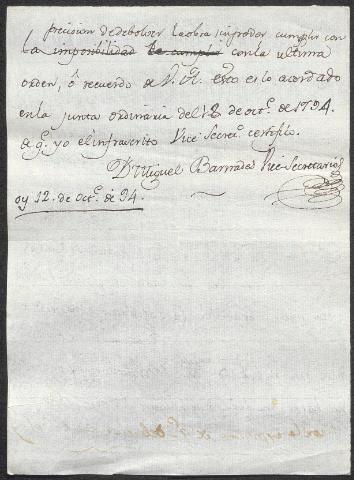 precision de debolver la obra sin poder cumplir con
la imposibilidad de cumplir con la ultima
orden, ó recuerdo de V. R. esto es lo acordado
en la junta ordinaria del 12 de oct.e de 1794.
de q.e yo el infraescrito Vice Secret.o certifico.
D.r Miguel Barnades Vice-Secretario
oy 12. de oct.e de 94.